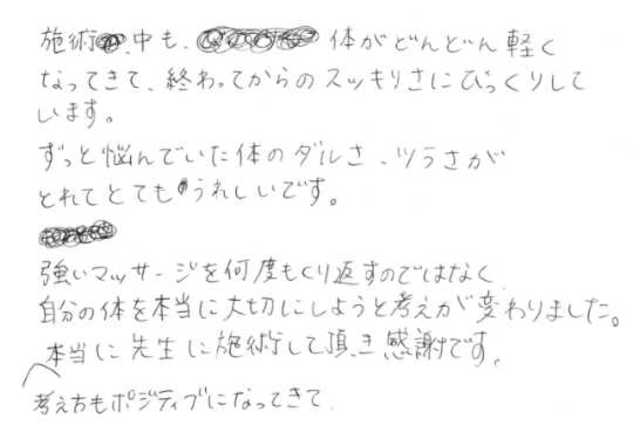 施術中も、体がどんどん軽く
なってきて、終わってからのスッキリさにびっくりして
います。
ずっと悩んでいた体のダルさ、ツラさが
とれてとてもうれしいです。
強いマッサージを何度もくり返すのではなく
自分の体を本当に大切にしようと考えが変わりました。
本当に先生に施術して頂き感謝です。
考え方もポジティブになってきて